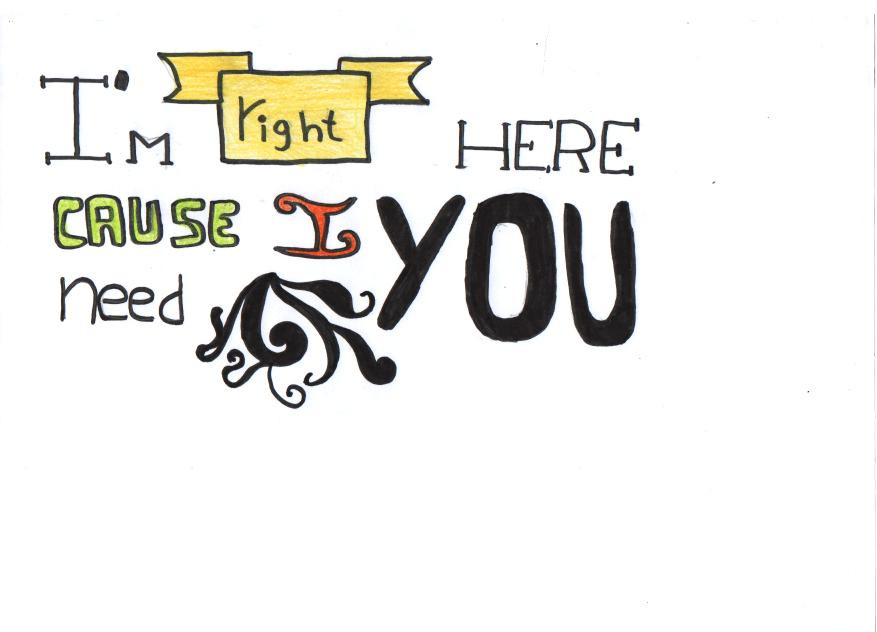 I'M right HERE
CAUSE I
need YOU